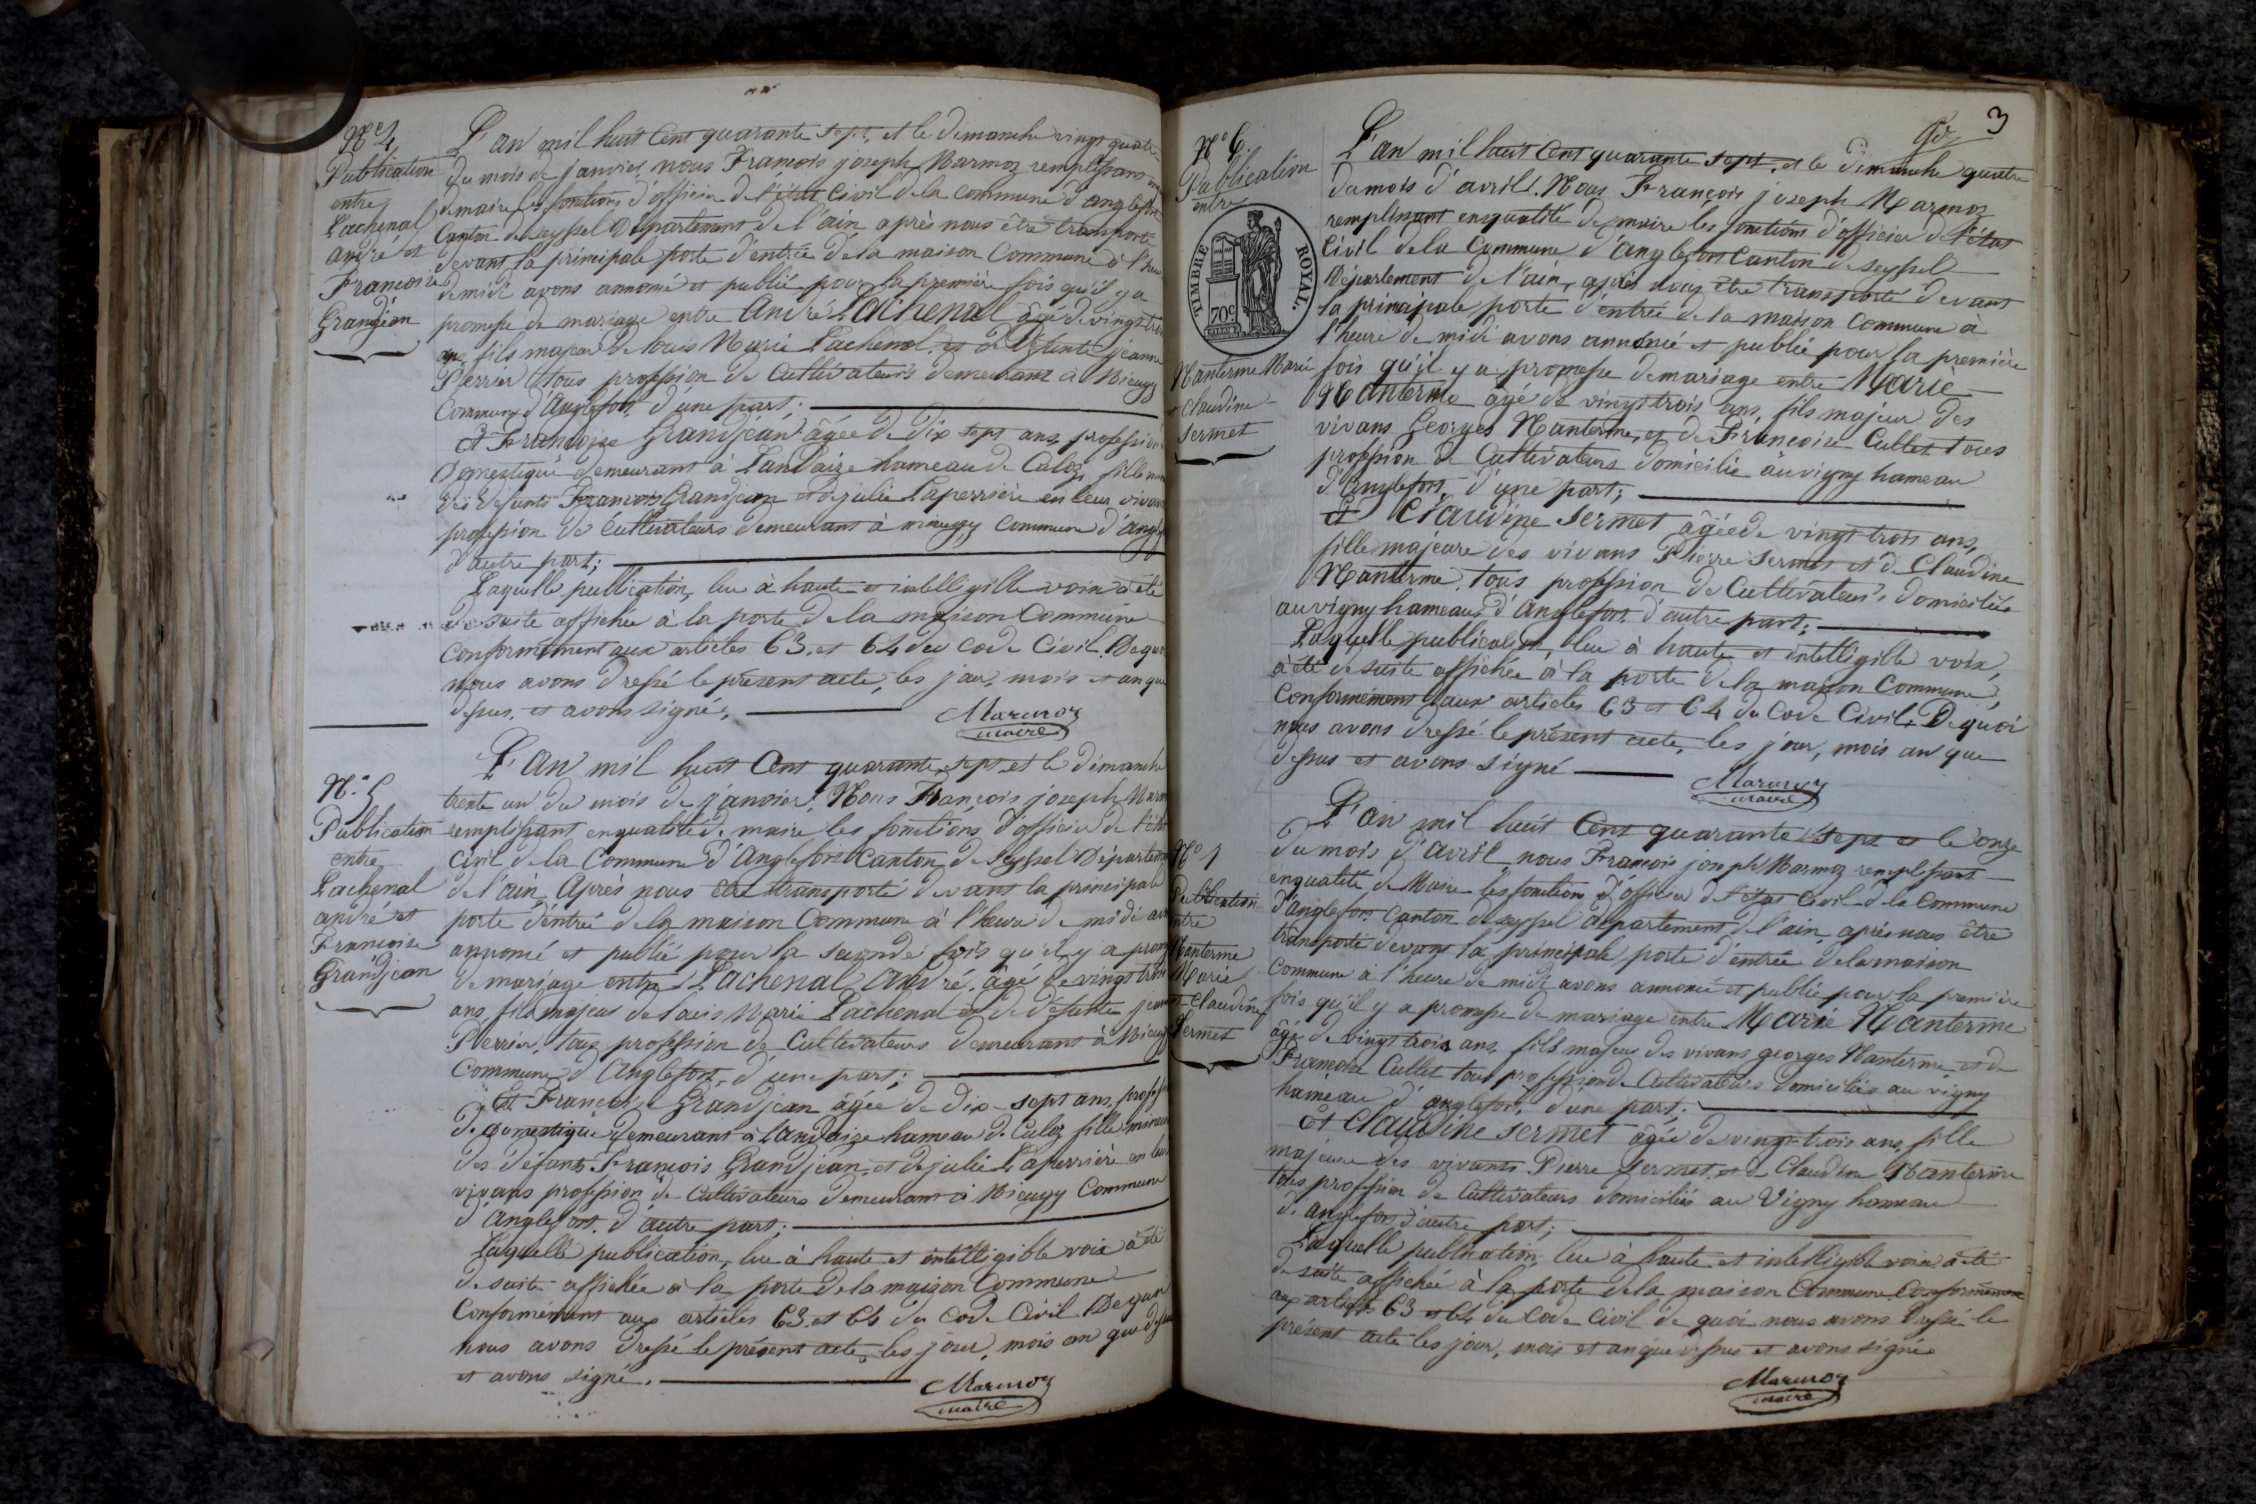 N.º 4
Publication
entre
Lachenal
andré et
Françoise
Grandjean
L'an mil huit Cent quarante sept, et le dimanche vingt quatre
du mois de janvier, nous François joseph Marmoz remplissans en
de maire les fonctions d'officier de l'état Civil de la commune d'anglefort
Canton de seyssel Département de l'ain après nous être transporté
devant la principale porte d'entrée de la maison Commune à l'heure
de midi avons annoncé et publié pour la première fois qu'il y a
promesse de mariage entre André Lachenal âgé de vingt trois
ans, fils majeur de louis Marie Lachenal et de Défunte jeanne
Perrier tous profession de Cultivateurs demeurant à Mieugy
Commune d'Anglefort, d'une part;
Et Françoise Grandjean âgée de Dix sept ans, profession
Domestique demeurant à Landaize hameau de Culoz, fille
des défunts François Grandjean et de julie Laperrière en leur vivant
profession de Cultivateurs demeurant à mieugy Commune d'ang
d'autre part;
Laquelle publication, lue à haute et intelligible voix a été
de suite affichée à la porte de la maison Commune
Conformément aux articles 63. et 64 du code Civil. De quoi
nous avons dressé le présent acte, les jour, mois et an que
dessus. et avons signé.
Marmoz
maire
N.º 5
Publication
entre
Lachenal
andré et
Françoise
Grandjean
L'an mil huit Cent quarante sept et le dimanche
trente un du mois de janvier. Nous François joseph Marm
remplissant en qualité de maire les fonctions d'officier de l'état
Civil de la Commune d'Anglefort Canton de Seyssel Départem
de l'ain, Après nous être transporté devant la principale
porte d'entrée de la maison Commune à l'heure de midi av
annoncé et publié pour la seconde fois qu'il y a prom
de mariage entre Lachenal André, âgé de vingt trois
ans, fils majeur de louis Marie Lachenal et de défunte jeanne
Perrier, tous profession de Cultivateurs demeurant à Mieugy
Commune d'Anglefort, d'une part;
Et Françoise Grandjean âgée de dix-sept ans, profes
de domestique demeurant à Landaize hameau de Culoz fille mineure
des défunts François Grandjean et de julie Laperrière en leur
vivans profession de Cultivateurs demeurant à Mieugy Commune
d'Anglefort. d'autre part;
Laquelle publication, lue à haute et intelligible voix a été
de suite affichée à la porte de la maison Commune
Conformément aux articles 63 et 64 du code Civil De quoi
nous avons dressé le présent acte, les jour, mois an que dessus
et avons signé.
Marmoz
maire
3
N.º 6.
Publication
entre
TIMBRE ROYAL.
70c
Nanterme Marie
et Claudine
Sermet
L'an mil huit Cent quarante sept. et le dimanche quatre
du mois d'avril. Nous François joseph Marmoz
remplissant en qualité de maire les fonctions d'officier de l'état
Civil de la Commune d'anglefort Canton de seyssel
Département de l'ain, après nous être transporté devant
la principale porte d'entrée de la maison Commune à
l'heure de midi avons annoncé et publié pour la première
fois qu'il y a promesse de mariage entre Marie
Nanterme âgé de vingt trois ans, fils majeur des
vivans Georges Nanterme, et de Françoise Cullet tous
profession de Cultivateurs domicilié auvigny hameau
d'Anglefort, d'une part;
Et Claudine Sermet âgée de vingt trois ans,
fille majeure des vivans Pierre Sermet et de Claudine
Nanterme. tous profession de Cultivateurs domiciliés
auvigny hameau d'anglefort. d'autre part;
Laquelle publication, lue à haute et intelligible voix,
a été de suite affichée à la porte de la maison Commune,
Conformément aux articles 63 et 64 du Code Civil, De quoi
nous avons dressé le présent acte, les jour, mois an que
dessus et avons signé
Marmoz
maire
Nº 7
Publication
entre
Nanterme
Marie
et Claudine
Sermet
L'an mil huit Cent quarante sept et le onze
du mois d'avril nous François joseph Marmoz remplissant
en qualité de Maire les fonctions d'officier de l'état Civil de la Commune
d'anglefort Canton de seyssel département de l'ain, après nous être
transporté devant la principale porte d'entrée de la maison
Commune à l'heure de midi avons annoncé et publié pour la première
fois qu'il y a promesse de mariage entre Marie Nanterme
âgé de vingt trois ans, fils majeur des vivans georges Nanterme et de
Françoise Cullet tous profession de Cultivateurs domiciliés au vigny
hameau d'anglefort, d'une part;
Et Claudine Sermet âgée de vingt-trois ans, fille
majeure des vivants Pierre Sermet et de Claudine Nanterme
tous profession de Cultivateurs domiciliés au Vigny hameau
d'anglefort d'autre part;
Laquelle publication, lue à haute et intelligible voix a été
de suite affichée à la porte de la maison Commune Conformément
aux articles 63 et 64 du Code Civil de quoi nous avons dressé le
présent acte les jour, mois et an que dessus et avons signé
Marmoz
maire